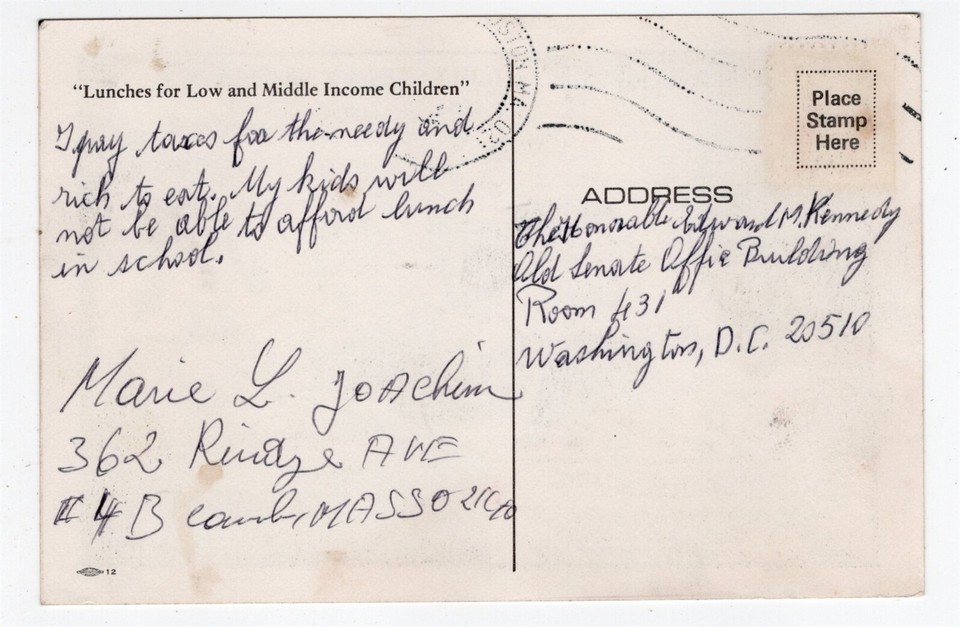 "Lunches for Low and Middle Income Children"
I pay taxes for the needy and
rich to eat. My kids will
not be able to afford lunch
in school.
Marie L. JoAchim
362 Rindge AVE
# 4 B camb, MASS 02140
12
BOSTON MA 021
Place
Stamp
Here
ADDRESS
The Honorable Edward M. Kennedy
Old Senate Office Building
Room 431
Washington, D.C. 20510